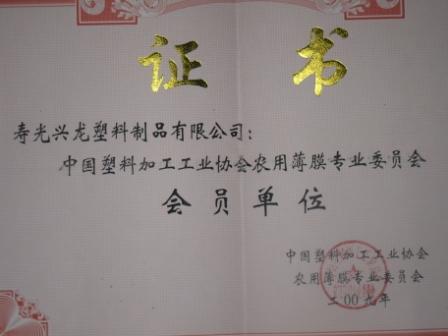 证 书
寿光兴龙塑料制品有限公司：
中国塑料加工工业协会农用薄膜专业委员会
会员单位
中国塑料加工工业协会
农用薄膜专业委员会
二00九年